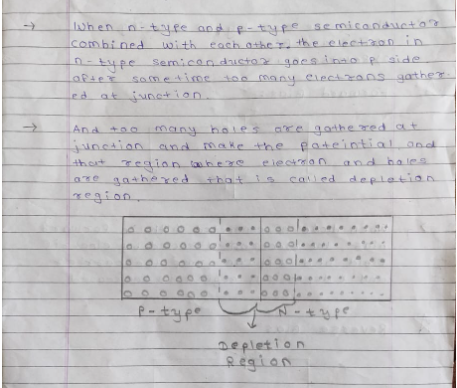 → When n-type and p-type semiconductor
combined with each other, the electron in
n-type semiconductor goes into p side
after some time too many electrons gather-
ed at junction.
→ And too many holes are gathered at
junction and make the pateintial and
that region where electron and holes
are gathered that is called depletion
region.
P-type N-type
Depletion
Region